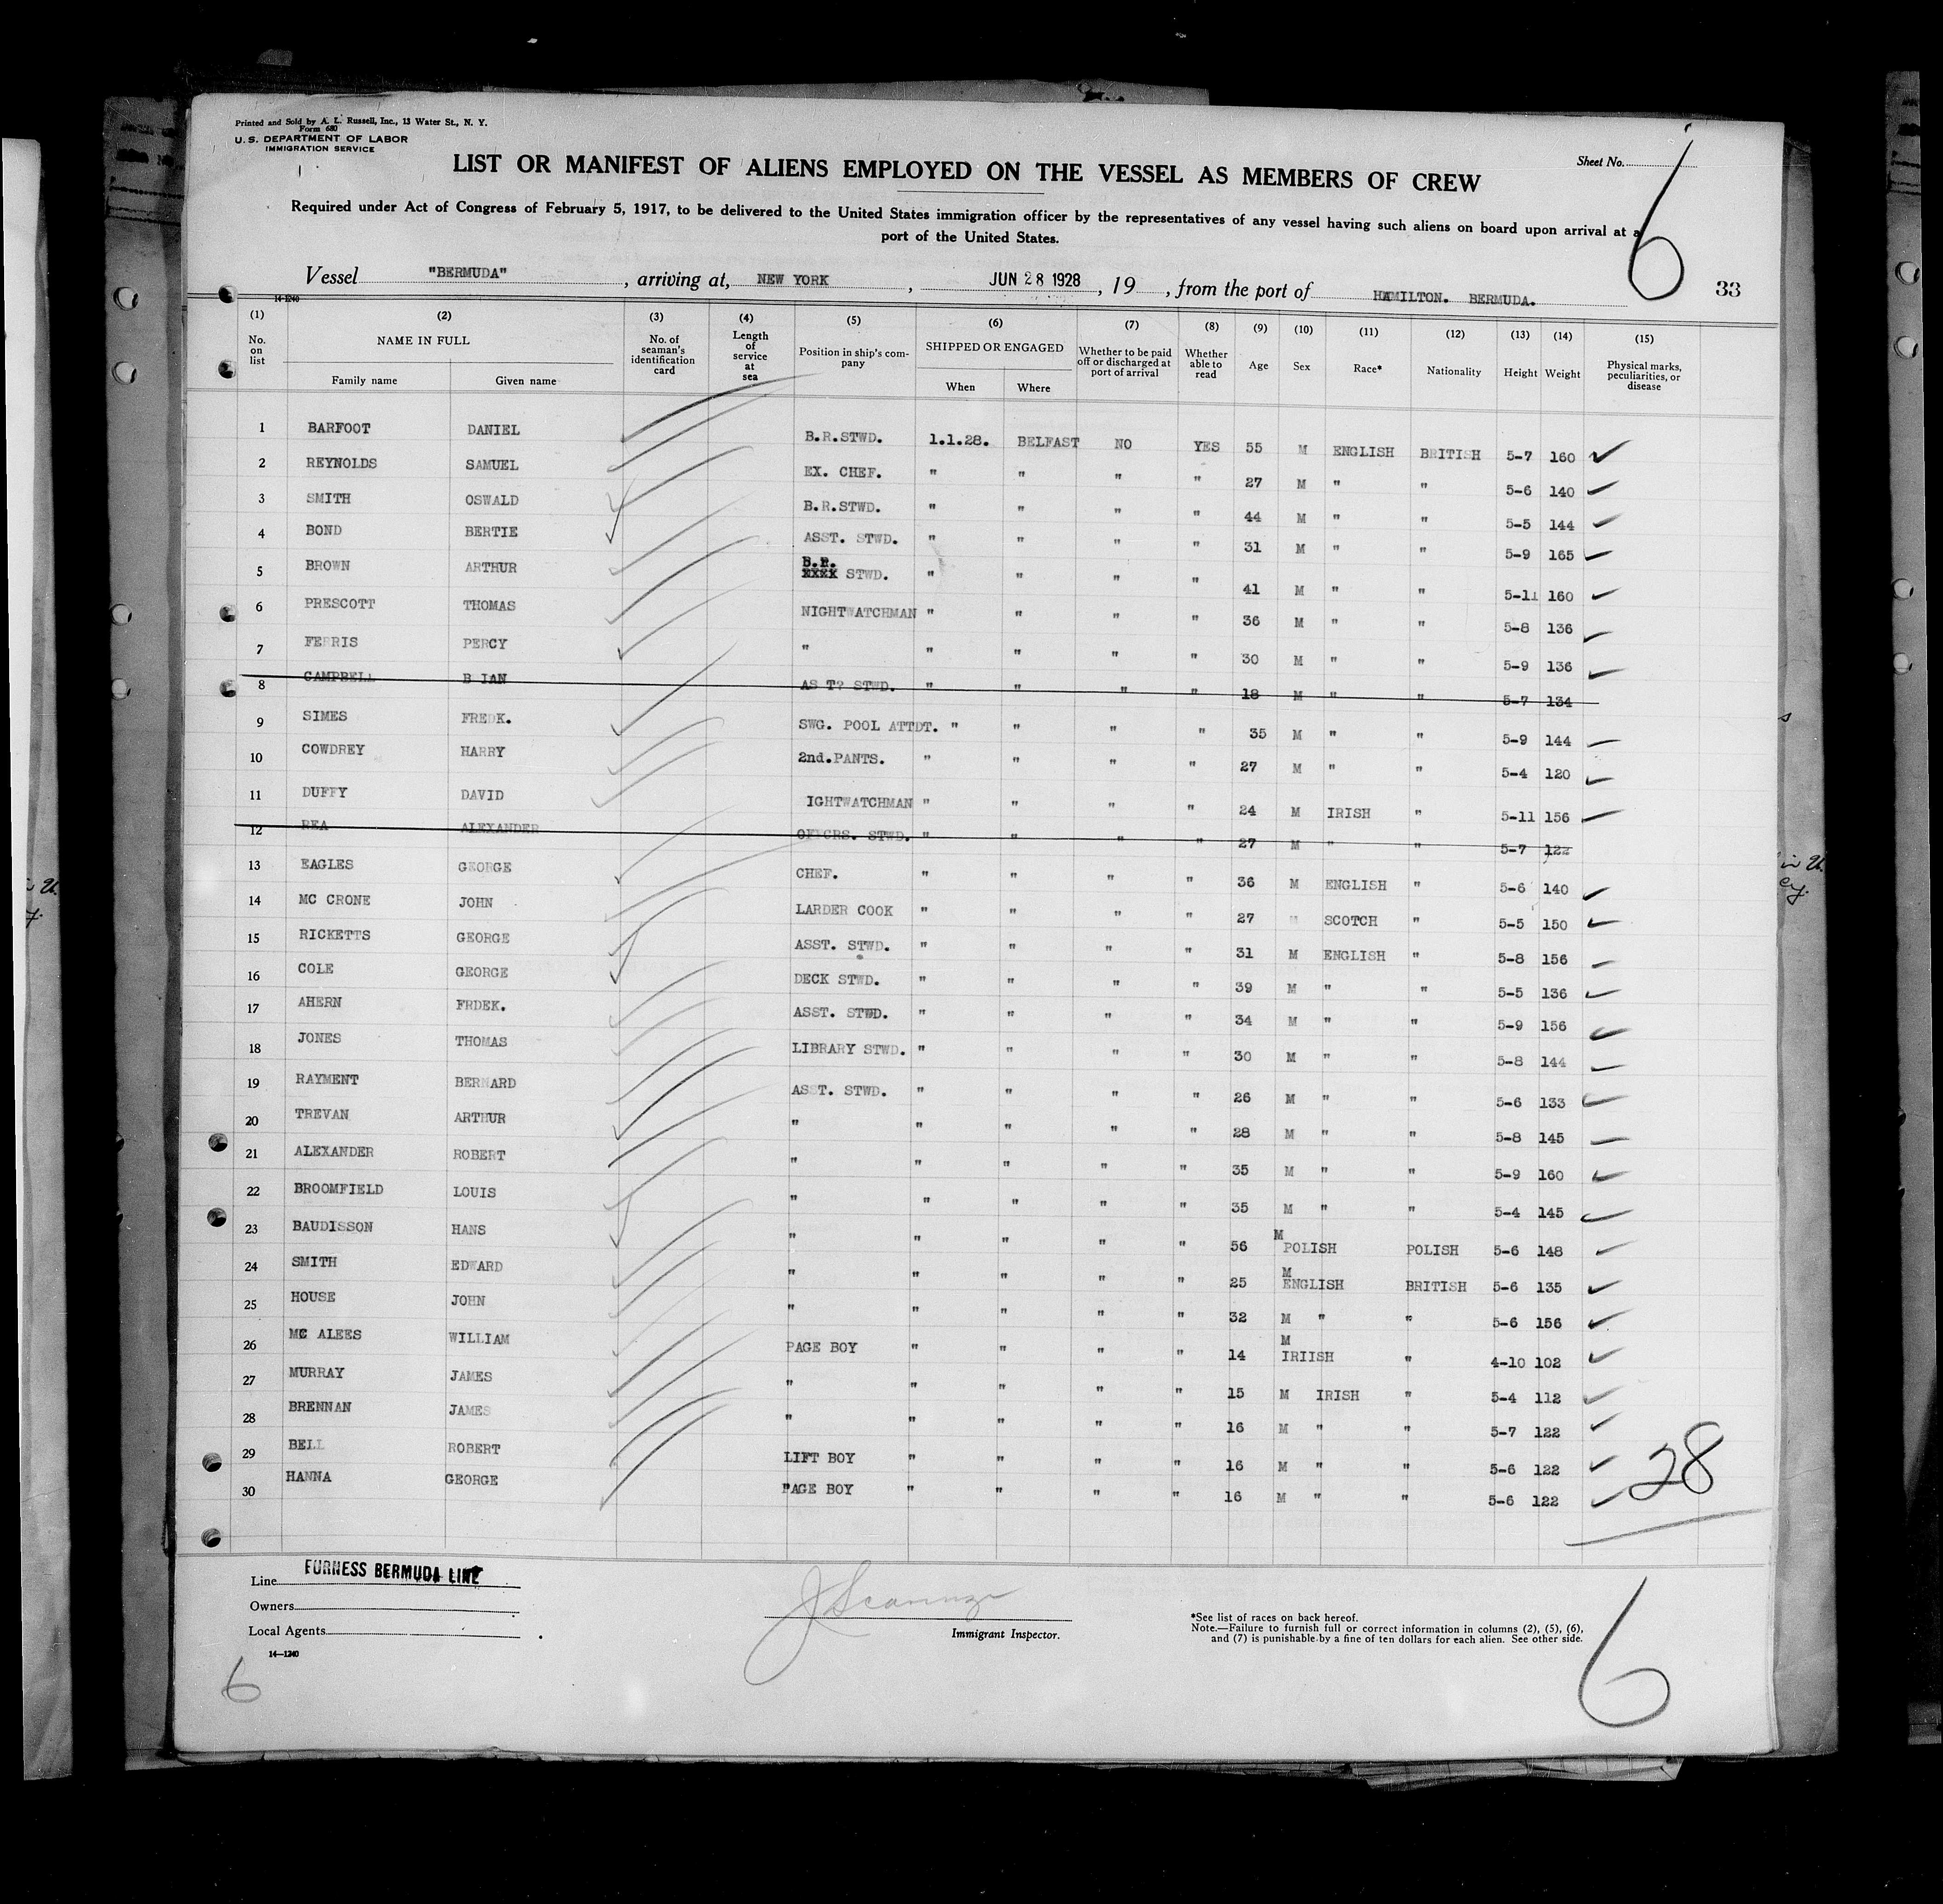 Printed and Sold by A. L. Russell, Inc., 13 Water St., N. Y.
Form 680
U. S. DEPARTMENT OF LABOR
IMMIGRATION SERVICE
Sheet No.
6
LIST OR MANIFEST OF ALIENS EMPLOYED ON THE VESSEL AS MEMBERS OF CREW
Required under Act of Congress of February 5, 1917, to be delivered to the United States immigration officer by the representatives of any vessel having such aliens on board upon arrival at a
port of the United States.
Vessel "BERMUDA", arriving at, NEW YORK, JUN 28 1928, 19 , from the port of HAMILTON. BERMUDA.
33
14-1240
(1) (2) (3) (4) (5) (6) (7) (8) (9) (10) (11) (12) (13) (14) (15)
No. on list NAME IN FULL Family name Given name No. of seaman's identification card Length of service at sea Position in ship's company SHIPPED OR ENGAGED When Where Whether to be paid off or discharged at port of arrival Whether able to read Age Sex Race* Nationality Height Weight Physical marks, peculiarities, or disease
1 BARFOOT DANIEL B.R.STWD. 1.1.28. BELFAST NO YES 55 M ENGLISH BRITISH 5-7 160
2 REYNOLDS SAMUEL EX. CHEF. " " " " 27 M " " 5-6 140
3 SMITH OSWALD B.R.STWD. " " " " 44 M " " 5-5 144
4 BOND BERTIE ASST. STWD. " " " " 31 M " " 5-9 165
5 BROWN ARTHUR B.R. XXXX STWD. " " " " 41 M " " 5-11 160
6 PRESCOTT THOMAS NIGHTWATCHMAN " " " " 36 M " " 5-8 136
7 FERRIS PERCY " " " " " 30 M " " 5-9 136
8 CAMPBELL B IAN AS T? STWD. " " " " 18 M " " 5-7 134
9 SIMES FREDK. SWG. POOL ATTDT. " " " " 35 M " " 5-9 144
10 COWDREY HARRY 2nd.PANTS. " " " " 27 M " " 5-4 120
11 DUFFY DAVID IGHTWATCHMAN " " " " 24 M IRISH " 5-11 156
12 REA ALEXANDER OFFCRS. STWD. " " " " 27 M " " 5-7 122
13 EAGLES GEORGE CHEF. " " " " 36 M ENGLISH " 5-6 140
14 MC CRONE JOHN LARDER COOK " " " " 27 M SCOTCH " 5-5 150
15 RICKETTS GEORGE ASST. STWD. " " " " 31 M ENGLISH " 5-8 156
16 COLE GEORGE DECK STWD. " " " " 39 M " " 5-5 136
17 AHERN FRDEK. ASST. STWD. " " " " 34 M " " 5-9 156
18 JONES THOMAS LIBRARY STWD. " " " " 30 M " " 5-8 144
19 RAYMENT BERNARD ASST. STWD. " " " " 26 M " " 5-6 133
20 TREVAN ARTHUR " " " " " 28 M " " 5-8 145
21 ALEXANDER ROBERT " " " " " 35 M " " 5-9 160
22 BROOMFIELD LOUIS " " " " " 35 M " " 5-4 145
23 BAUDISSON HANS " " " " " 56 M POLISH POLISH 5-6 148
24 SMITH EDWARD " " " " " 25 M ENGLISH BRITISH 5-6 135
25 HOUSE JOHN " " " " " 32 M " " 5-6 156
26 MC ALEES WILLIAM PAGE BOY " " " " 14 M IRIISH " 4-10 102
27 MURRAY JAMES " " " " " 15 M IRISH " 5-4 112
28 BRENNAN JAMES " " " " " 16 M " " 5-7 122
29 BELL ROBERT LIFT BOY " " " " 16 M " " 5-6 122
30 HANNA GEORGE PAGE BOY " " " " 16 M " " 5-6 122
28
Line FURNESS BERMUDA LINE
Owners
Local Agents
14-1240
Immigrant Inspector.
*See list of races on back hereof.
Note.—Failure to furnish full or correct information in columns (2), (5), (6),
and (7) is punishable by a fine of ten dollars for each alien. See other side.
6
6